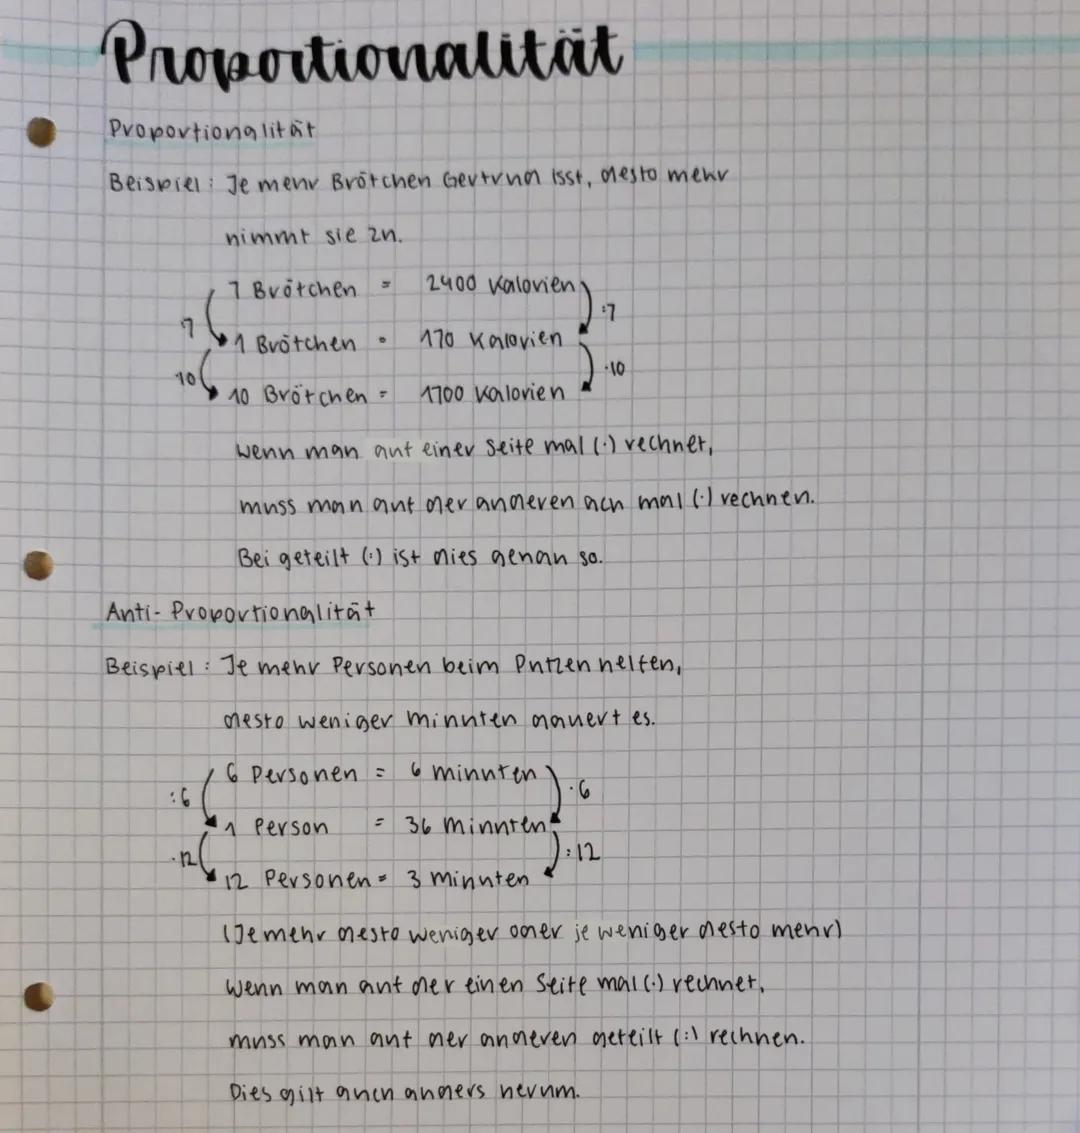 Proportionalität
Proportionalität
Beispiel: Je mehr Brötchen Gertrud isst, desto mehr
nimmt sie zu.
7 Brötchen = 2400 Kalorien
:7 :7
1 Brötchen = 170 Kalorien
·10 ·10
10 Brötchen = 1700 Kalorien
Wenn man auf einer Seite mal (·) rechnet,
muss man auf der anderen ach mal (·) rechnen.
Bei geteilt (:) ist dies genau so.
Anti-Proportionalität
Beispiel: Je mehr Personen beim Putzen helfen,
desto weniger minuten dauert es.
6 Personen = 6 minuten
:6 ·6
1 Person = 36 minuten
·12 :12
12 Personen = 3 minuten
(Je mehr desto weniger oder je weniger desto mehr)
Wenn man auf der einen Seite mal (·) rechnet,
muss man auf der anderen geteilt (:) rechnen.
Dies gilt auch anders herum.